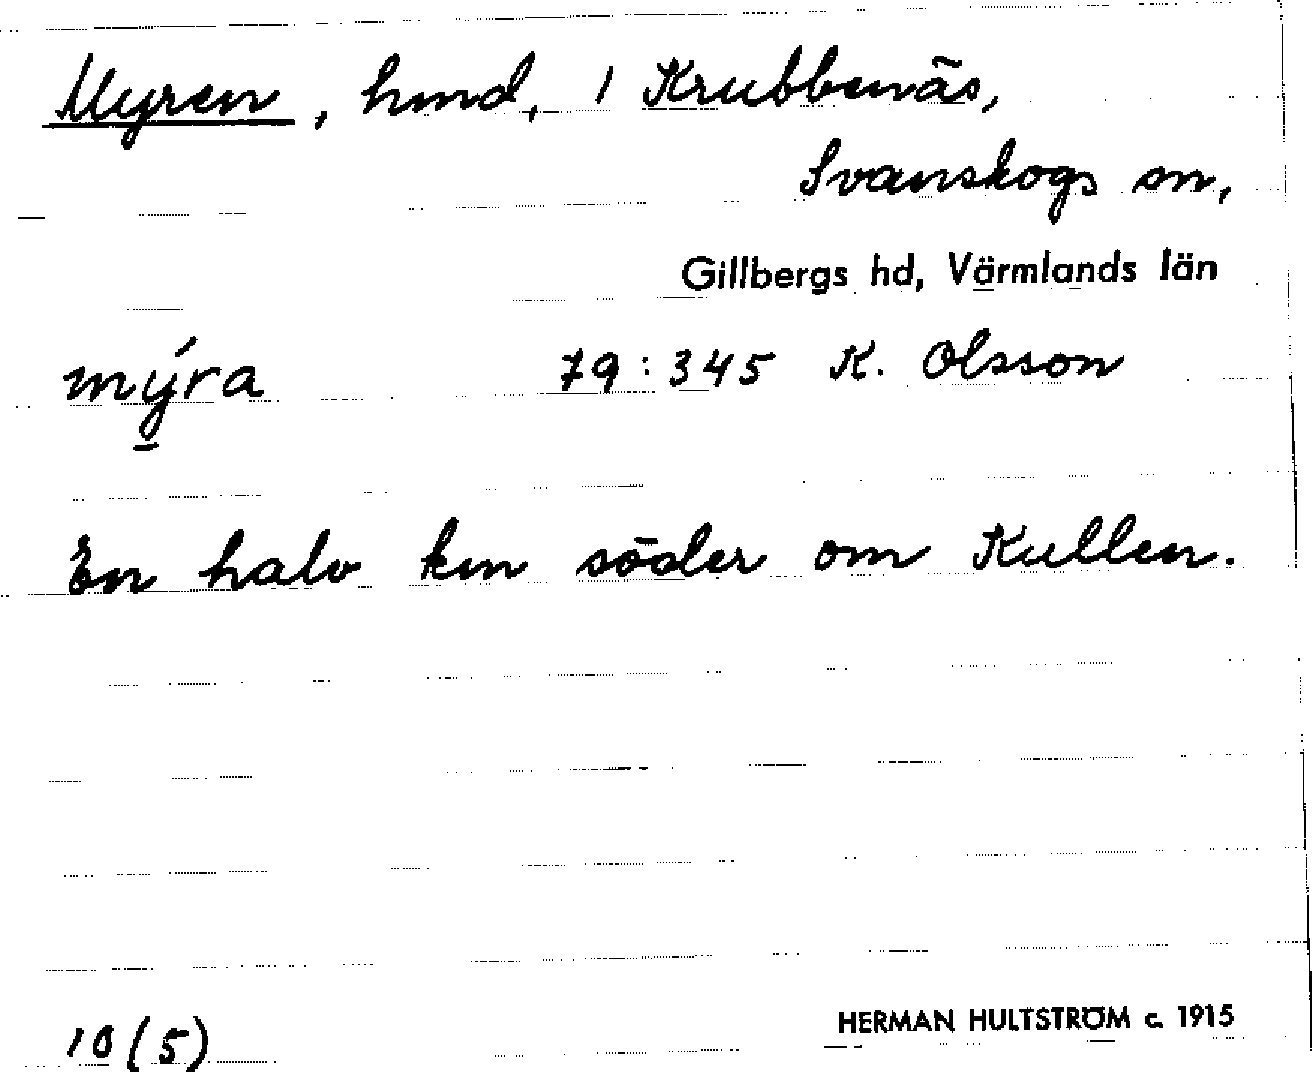 Myren, hmd, 1 Krubbenäs,
Svanskogs sn,
Gillbergs hd, Värmlands län
mýra 79:345 K. Olsson
En halv km söder om Kullen.
10 (5) HERMAN HULTSTRÖM c. 1915